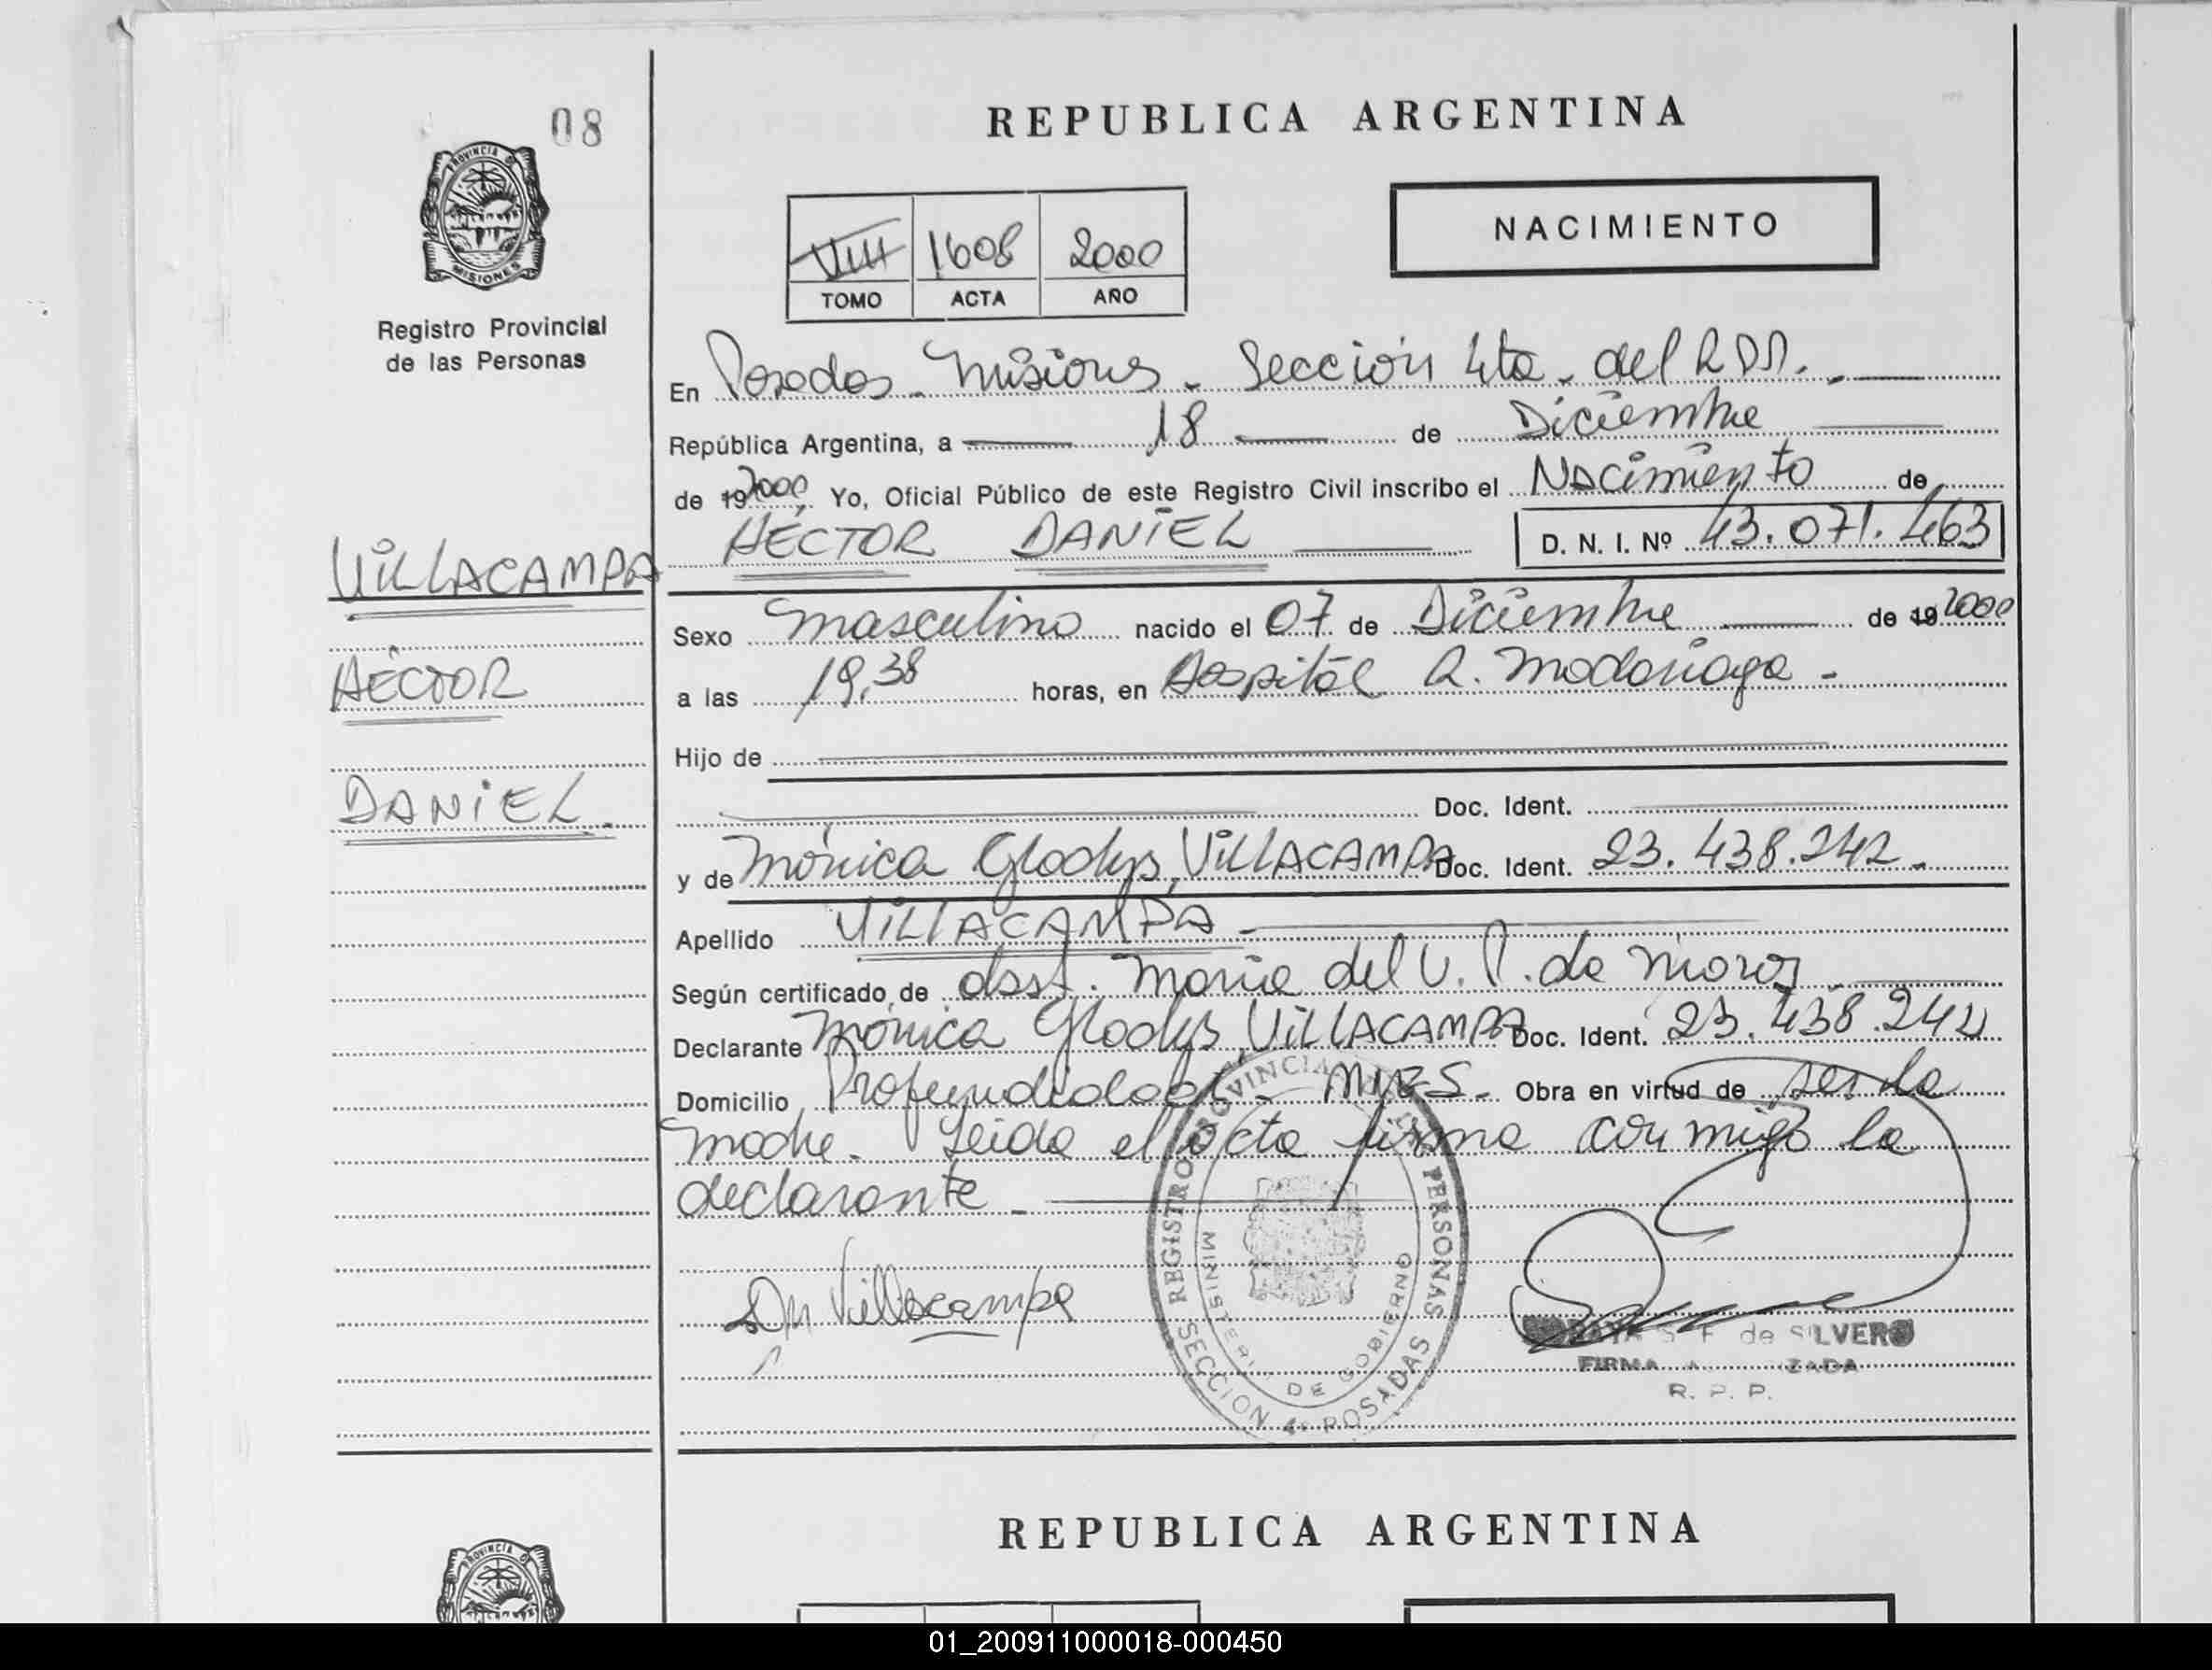 08
PROVINCIA DE
MISIONES
Registro Provincial
de las Personas
REPUBLICA ARGENTINA
NACIMIENTO
VIII 1608 2000
TOMO ACTA AÑO
En Posadas - Misiones - Sección 4ta - del R.P.P. -
República Argentina, a 18 de Diciembre
de 19 2000 Yo, Oficial Público de este Registro Civil inscribo el Nacimiento de
HÉCTOR DANIEL D. N. I. Nº 43.071.463
VILLACAMPA
HÉCTOR
DANIEL.
Sexo masculino nacido el 07 de Diciembre de 19 2000
a las 19,38 horas, en Hospital R. Madariaga -
Hijo de
Doc. Ident.
y de Mónica Gladys VILLACAMPA Doc. Ident. 23.438.242 -
Apellido VILLACAMPA -
Según certificado de obst. María del V. P. de
Declarante Mónica Gladys VILLACAMPA Doc. Ident. 23.438.242
Domicilio Profundidad - Mnes - Obra en virtud de ser la
madre - Leida el acta firma conmigo la
declarante -
Villacampa
REGISTRO PROVINCIAL DE LAS PERSONAS
MINISTERIO DE GOBIERNO
SECCION 4º POSADAS
S. F. de SILVERO
FIRMA
R. P. P.
REPUBLICA ARGENTINA
PROVINCIA DE
01_200911000018-000450